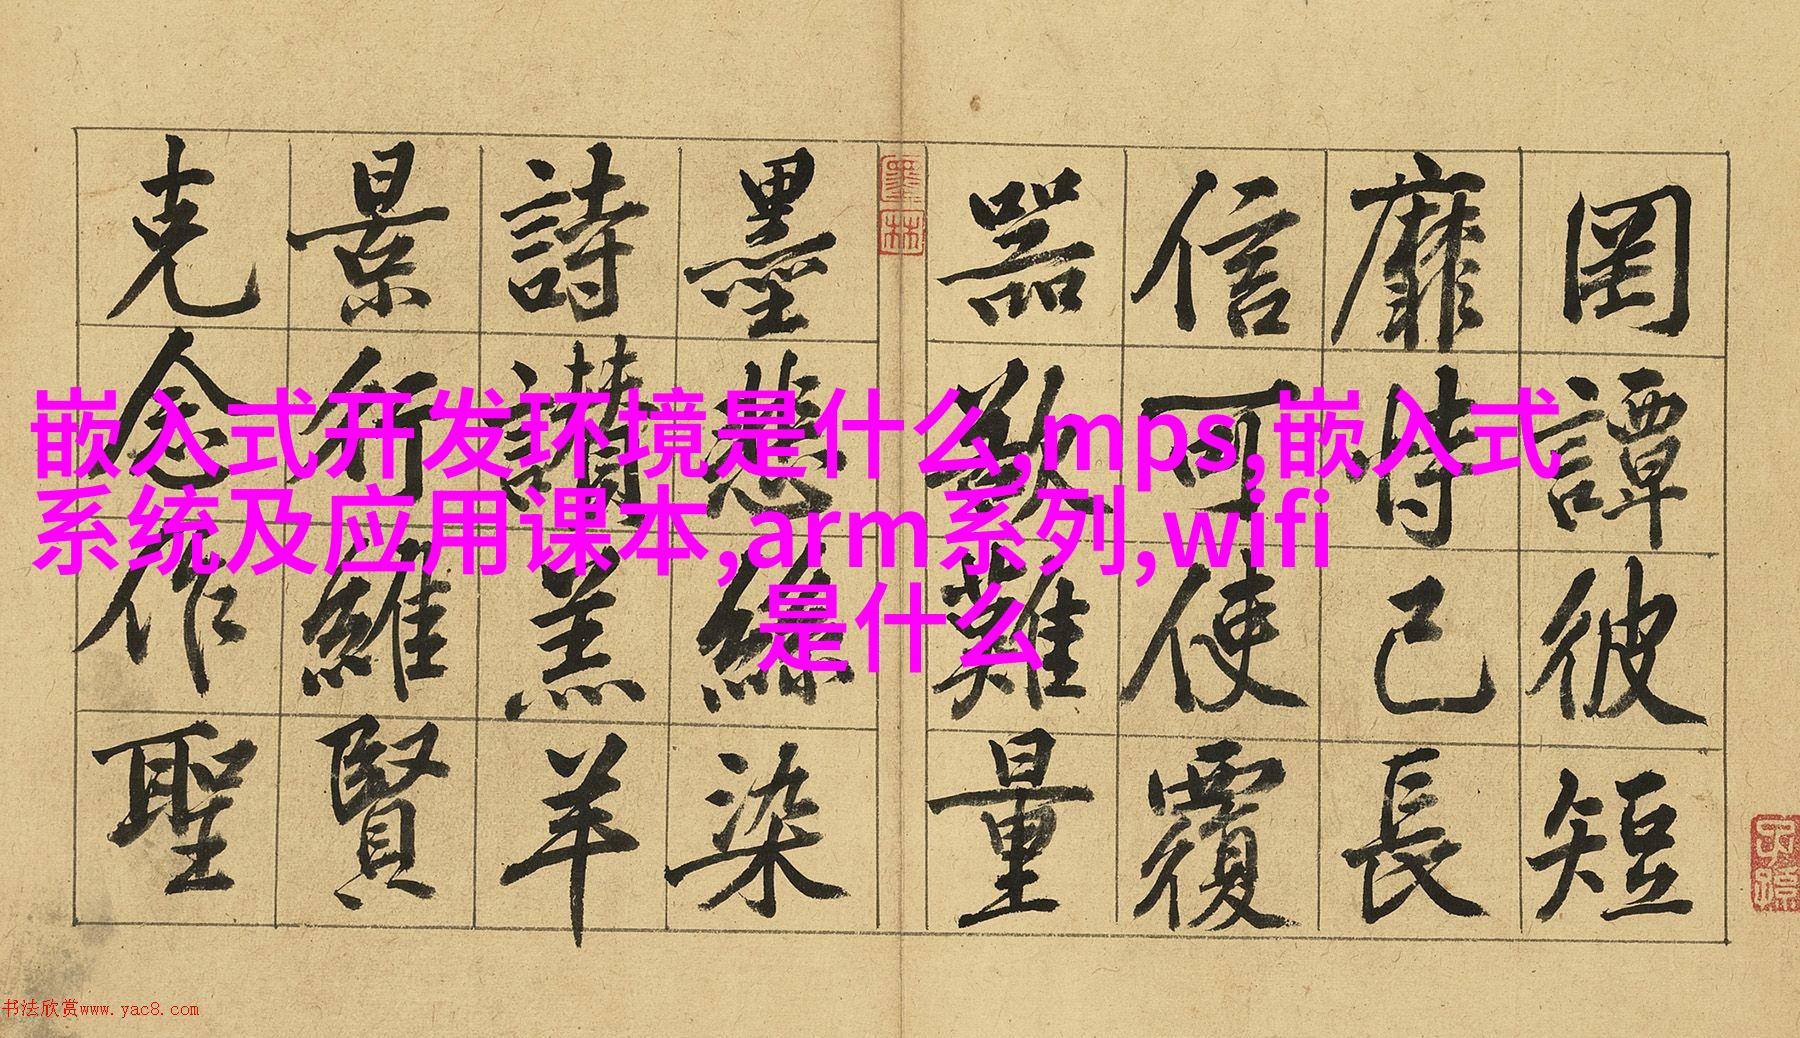 罔譚彼短
靡恃己長
信可使覆
器欲難量
墨悲絲染
詩讃羔羊
景行維賢
克念作聖
墨林
嵌入式开发环境是什么,mps,嵌入式
系统及应用课本,arm系列,wifi
是什么
书法欣赏www.yac8.com